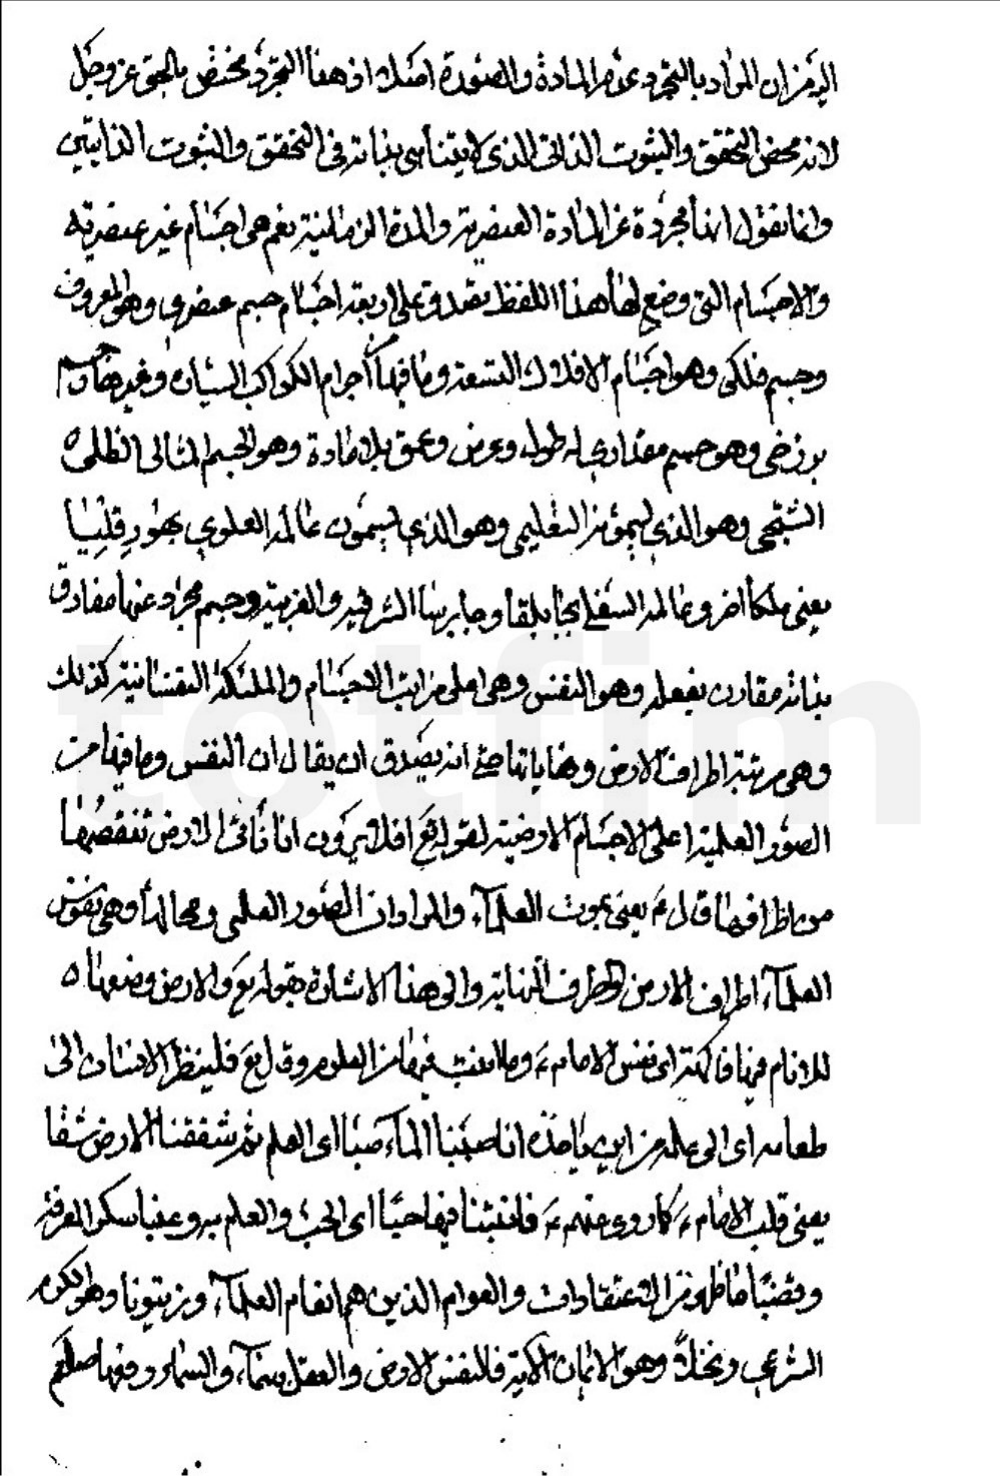 اليه من ان المراد بالتجرد عدم المادة والصورة اصلا اذ هذا التجرد مختص بالحق عز وجل
لانه محض التحقق والثبوت الذاتي الذي لا يتناهى بذاته في التحقق والثبوت الذاتيين
وانما نقول انها مجردة عن المادة العنصرية والمدة الزمانية نعم هي اجسام غير عنصرية
والاجسام التي وضع لها هذا اللفظ بقدوة على اربعة اجسام جسم عنصري وهو المعروف
وجسم فلكي وهو اجسام الافلاك التسعة وما فيها من اجرام الكواكب السيارة وغيرها وجسم
برزخي وهو جسم مقداري له طول وعرض وعمق بلا مادة وهو الجسم المثالي الظلي
الشبحي وهو الذي يسمونه التعليمي وهو الذي يسمون عالمه العلوي بهورقليا
يعني ملكا اخر وعالمه السفلي بجابلقا وجابرسا الشرقية والغربية وجسم مجرد عنها مفارق
بذاته مقارن بفعله وهو النفس وهي اعلى مراتب الاجسام والملئكة النفسانية كذلك
وهي مرتبة اطراف الارض ونهاياتها حتى انه يصدق ان يقال ان النفس وما فيها من
الصور العلمية اعلى الاجسام الارضية لقوله تع افلا يرون انا نأتي الارض ننقصها
من اطرافها قال ع يعني بموت العلمآء والمراد ان الصور العلمي ومحالها وهي نفوس
العلمآء اطراف الارض اطراف النهاية والى هذا الاشارة بقوله تع والارض وضعها
للانام فيها فاكهة اي نفس الامام ع وما انبت فيها من العلوم وقال تع فلينظر الانسان الى
طعامه اي الى علمه من اين ياخذه انا صببنا المآء صبا اي العلم ثم شققنا الارض شقا
يعني قلب الامام ع كما روي عنهم ع فانبتنا فيها حبا اي الحب والعلم سر وعنبا سكر المعرفة
وقضبا ما ظهر من الاعتقادات والعوام الذين هم انعام العلمآء وزيتونا وهو الكرم
الشرعي ونخلا وهو الاثمان الآتية فالنفس الارض والعقل سمآء والسماء وفيها صلكم
totfim